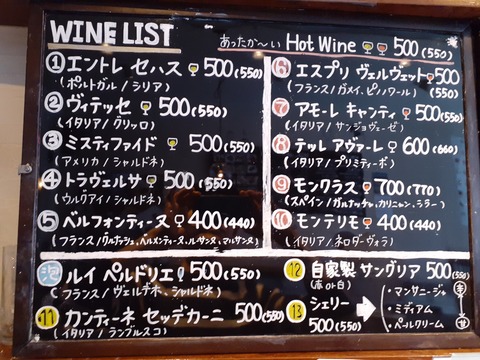 WINE LIST
あったか〜い Hot Wine 500(550)
① エントレ セハス 500(550)
(ポルトガル / シリア)
② ヴィテッセ 500(550)
(イタリア / グリッロ)
③ ミスティファイド 500(550)
(アメリカ / シャルドネ)
④ トラヴェルサ 500(550)
(ウルグアイ / シャルドネ)
⑤ ベルフォンティーヌ 400(440)
⑥ エスプリ ヴェルヴェット 500(550)
(フランス / ガメイ、ピノノワール)
⑦ アモーレ キャンティ 500(550)
(イタリア / サンジョヴェーゼ)
⑧ テッレ アヴァーレ 600(660)
(イタリア / プリミティーボ)
⑨ モンクラス 700(770)
(スペイン / ガルナッチャ、カリニャン、シラー)
⑩ モンテリモ 400(440)
(イタリア / ネロダーヴォラ)
泡 ルイ ペルドリエ 500(550)
(フランス / ヴェルデホ、シャルドネ)
11 カンティーネ セッデカーニ 500(550)
(イタリア / ランブルスコ)
12 自家製 サングリア 500(550)
(赤 or 白)
13 シェリー 500(550)
・マンサニージャ 辛
・ミディアム
・ペールクリーム 甘